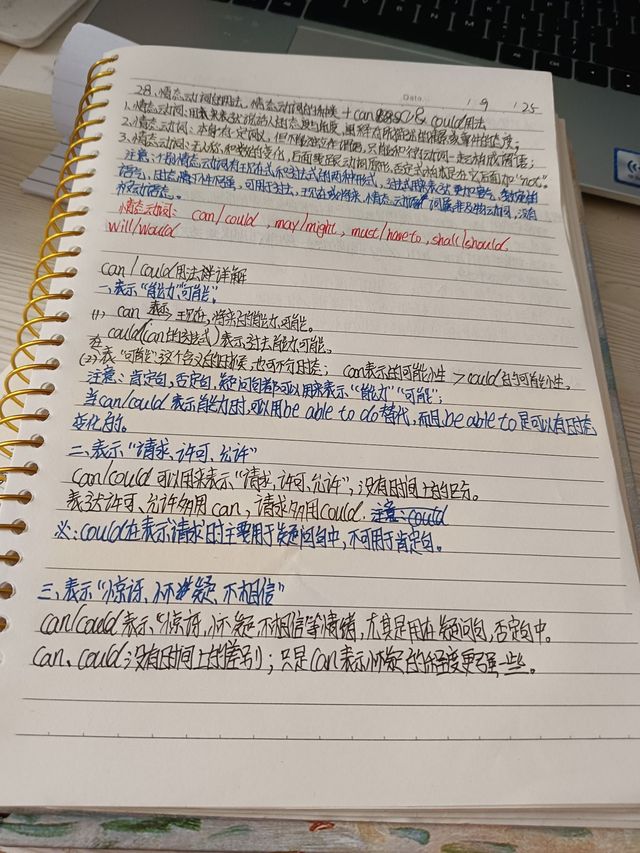 Date 1 9 '25
28、情态动词的用法,情态动词的 + can & could用法
1、情态动词:用来表达说话人的态度与角度,
2、情态动词:本身有一定词义,但不能独立作谓语,只能和行动词一起构成谓语;
3、情态动词:无人称和数的变化,后面要跟动词原形,否定式构成是在它后面加"not"。
注意:个别情态动词有现在式和过去式的两种形式,过去式用来表达更加客气,委婉的
语气,时态属于性不强,可用于过去,现在或将来,情态动词属非及物动词,没有
被动语态。
情态动词: can/could , may/might, must/have to, shall/should
will/would
can/could用法详解
一、表示"能力""可能"。
(1) can 表示现在,将来的能力可能。
could(can的过去式)表示过去能力可能。
(2)表"可能"这个含义的时候,也可不分时态; can表示的可能性 > could的可能性。
注意:肯定句,否定句,疑问句都可以用来表示"能力""可能";
当can/could表示能力时,可以用be able to do替代,而且be able to是可以有时态
变化的。
二、表示"请求、许可、允许"
can/could可以用来表示"请求、许可、允许",没有时间上的区分。
表达许可、允许多用can,请求多用could. 注意、could
※:could在表示请求时主要用于疑问句中,不可用于肯定句。
三、表示"惊讶、怀疑、不相信"
can/could表示"惊讶,怀疑,不相信等情绪,尤其是用在疑问句,否定句中。
can、could没有时间上的差别;只是can表示怀疑的程度更强一些。